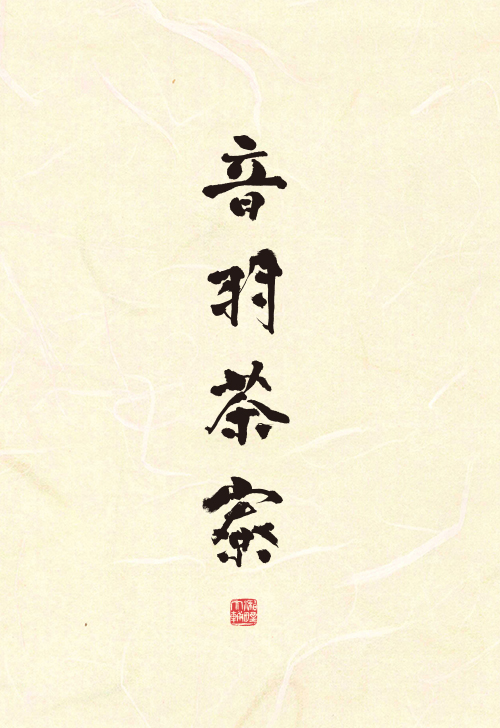 音羽茶寮